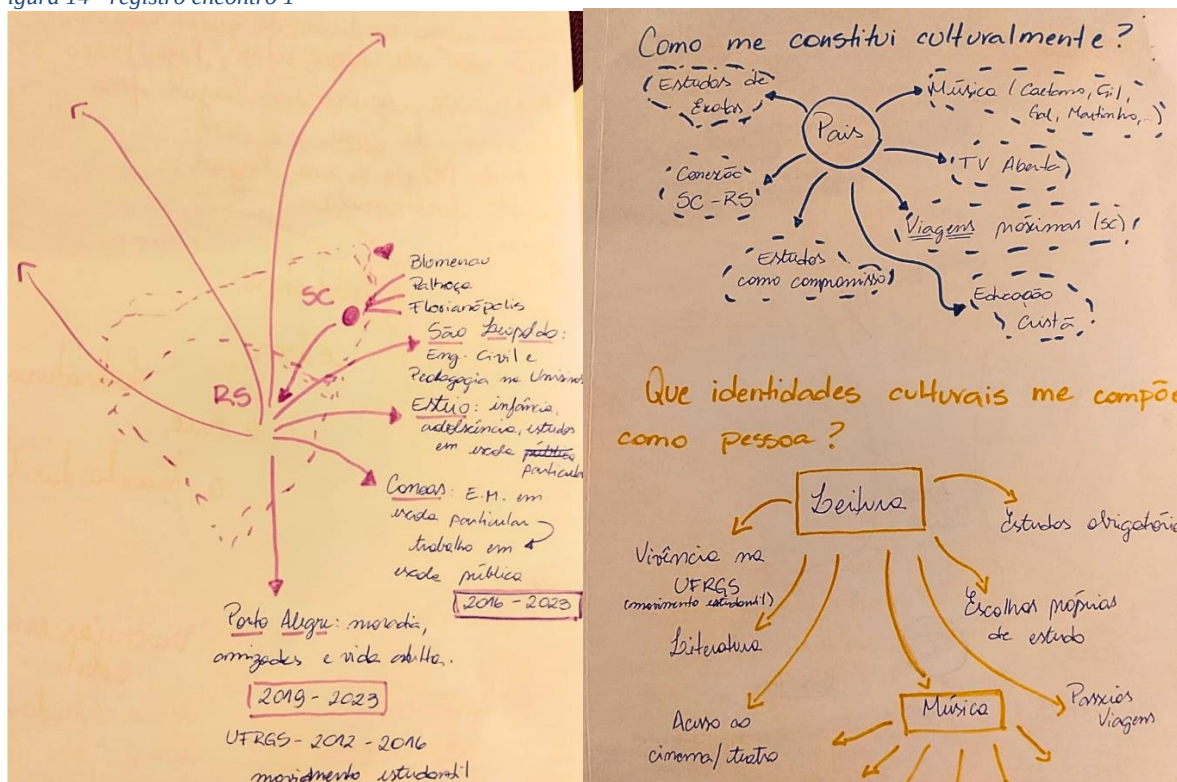 igura 14 - registro encontro 1
SC
RS
Blumenau
Palhoça
Florianópolis
São Leopoldo:
Eng. Civil e
Pedagogia na Unisinos
Esteio: infância,
adolescência, estudos
em escola pública
particular
Canoas: E.M. em
escola particular
trabalho em
escola pública
2016 - 2023
Porto Alegre: moradia,
amizades e vida adulta.
2019 - 2023
UFRGS - 2012 - 2016
movimento estudantil
Como me constitui culturalmente?
Pais
Estudos de
Exatas
Música (Caetano, Gil,
Gal, Martinho, ...)
TV Aberta
Conexão
SC - RS
Viagens próximas (SC)
Estudos
como compromisso
Educação
Cristã
Que identidades culturais me compõe
como pessoa?
Leitura
Estudos obrigatório
Vivência na
UFRGS
(movimento estudantil)
Escolhas próprias
de estudo
Literatura
Passeios
Viagens
Música
Acesso ao
cinema/teatro